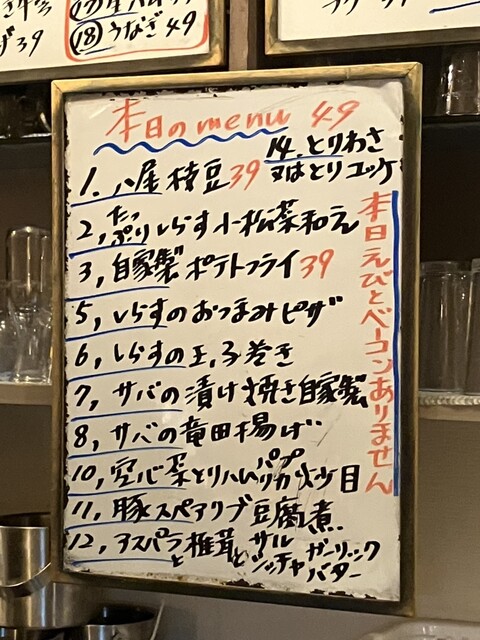 ⑱うなぎ 49
39
本日のmenu 49
1. 八尾枝豆39
14. とりわさ
又はとりユッケ
2, たっぷりしらす小松菜和え
3, 自家製ポテトフライ39
5, しらすのおつまみピザ
6, しらすの玉子巻き
7, サバの漬け焼き自家製
8, サバの竜田揚げ
10, 空心菜とりハムパプリカ
11, 豚スペアリブ豆腐煮
12, アスパラと椎茸とサルシッチャガーリックバター
本日えびとベーコンありません